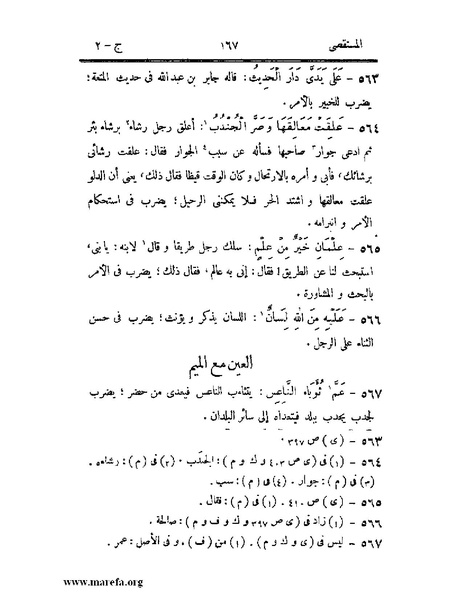 المستقصى ١٦٧ ج - ٢
٥٦٣ - عَلَى يَدَىَّ دَارَ الْحَدِيثُ: قاله جابر بن عبدالله فى حديث المتعة؛
يضرب للخبير بالأمر.
٥٦٤ - عَلِقَتْ مَعَالِقَهَا وَصَرَّ الْجُنْدُبُ١: أعلق رجل رشاءه٢ برشاء بئر
ثم ادعى جوار٣ صاحبها فسأله عن سبب٤ الجوار فقال: علقت رشائى
برشائك، فأبى و أمره بالارتحال وكان الوقت قيظا فقال ذلك، يعنى أن الدلو
علقت معالقها و اشتد الحر فلا يمكننى الرحيل؛ يضرب فى استحكام
الأمر و انبرامه.
٥٦٥ - عِلْمَانِ خَيْرٌ مِنْ عِلْمٍ: سلك رجل طريقا و قال١ لابنه: يا بنى،
استبحث لنا عن الطريق! فقال: إنى به عالم، فقال ذلك؛ يضرب فى الأمر
بالبحث و المشاورة.
٥٦٦ - عَلَيْهِ مِنَ اللهِ لِسَانٌ١: اللسان يذكر و يؤنث؛ يضرب فى حسن
الثناء على الرجل.
العين مع الميم
٥٦٧ - عَمَّ١ ثُوَبَاءُ النَّاعِسِ: يتثاءب الناعس فيعدى من حضر؛ يضرب
لجدب يحدث ببلد فيتعداه إلى سائر البلدان.
٥٦٣ - (ى) ص ٣٩٧.
٥٦٤ - (١) فى (ى ص ٤٠٣ و ك و م): الجندب. (٢) فى (م): رشاه.
(٣) فى (م): جوار. (٤) فى (م): سبب.
٥٦٥ - (ى) ص ٤١٠. (١) فى (م): فقال.
٥٦٦ - (١) زاد فى (ى ص ٣٩٧ و ك و ف و م): صالحة.
٥٦٧ - ليس فى (ى و ك و م). (١) من (ف)، و فى الأصل: عمر.
www.marefa.org